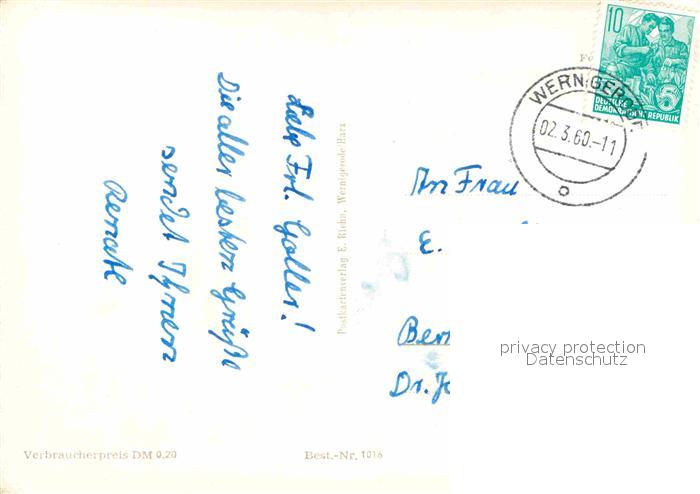 Liebe Frl. Goller!
Die aller besten Grüße
sendet Ihnen
Renate
Postkartenverlag E. Riehn, Wernigerode/Harz
10
DEUTSCHE
DEMOKRATISCHE REPUBLIK
5
WERNIGERODE
02.3.60.-11
An Frau
E.
Ber
Dr.
privacy protection
Datenschutz
Verbraucherpreis DM 0,20
Best.-Nr. 1016